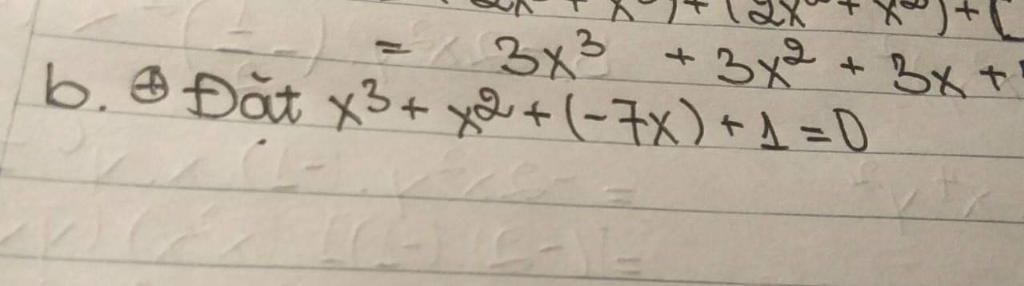 2x² + x²) + (
= 3x³ + 3x² + 3x +
b. ⊕ Đặt x³ + x² + (-7x) + 1 = 0